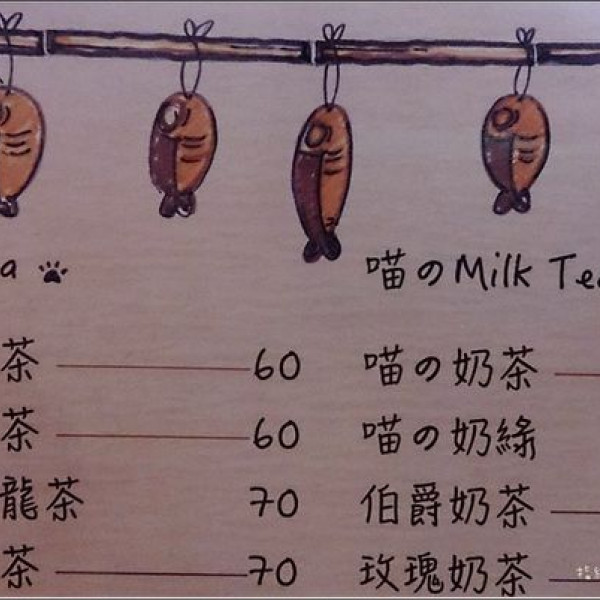 a
喵のMilk Tea
茶 60
喵の奶茶
茶 60
喵の奶綠
龍茶 70
伯爵奶茶
茶 70
玫瑰奶茶